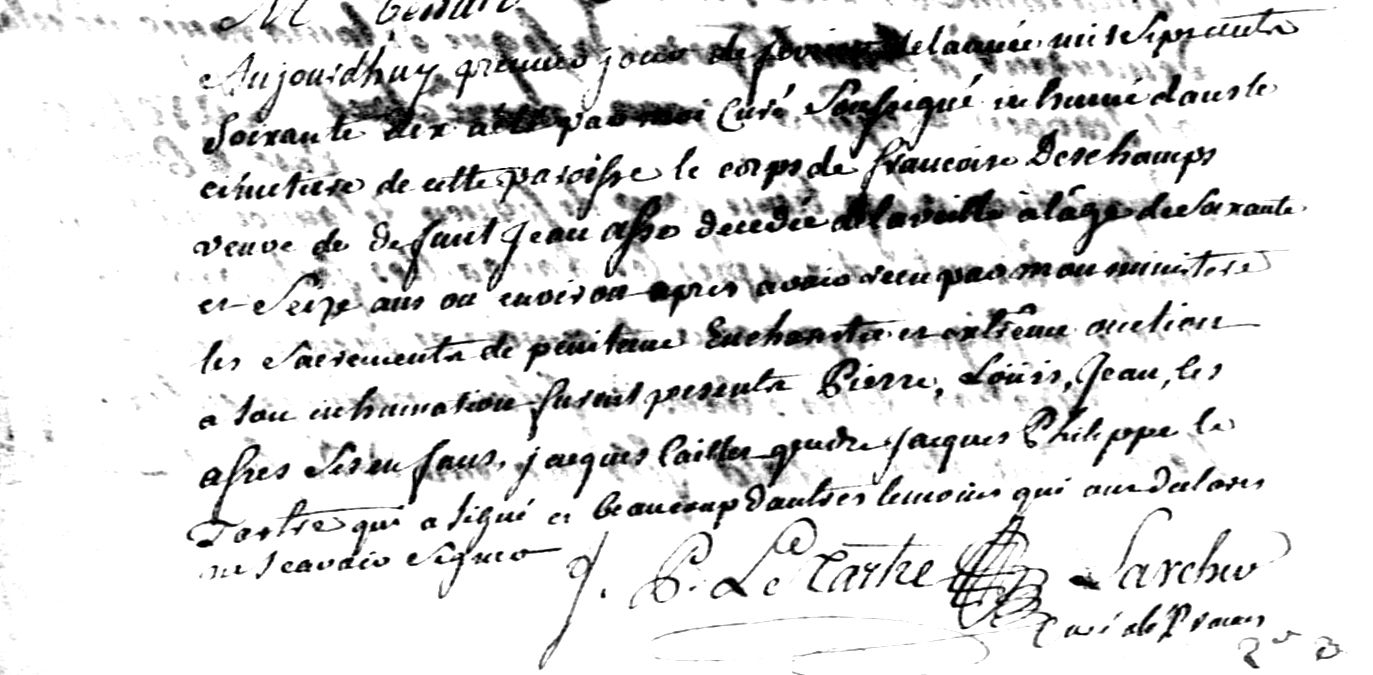 Aujourdhuy premier jour de fevrier de lannée mil sept cents
soixante dix a été par moi Curé soussigné inhumé dans le
cimetiere de cette paroisse le corps de francoise Deschamps
veuve de defunt Jean asse decedée de la veille a l'âge de soixante
et seize ans ou environ apres avoir recu par mon ministere
les sacrements de penitence Eucharistie et extrême onction
a son inhumation furent presents Pierre, Loüis, Jean, les
asses ses enfans, jacques Cailler gendre jacques Philippe le
Tartre qui a signé et beaucoup d'autres temoins qui ont declarés
ne scavoir signer
J. P. Le Tartre Larcher
Curé de